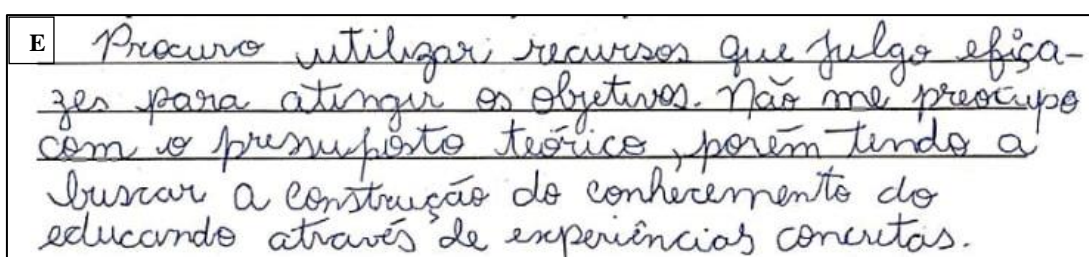 E Procuro utilizar recursos que julgo efiça-
zes para atingir os objetivos. Não me preocupo
com o pressuposto teórico, porém tendo a
buscar a construção do conhecemento do
educando através de experiências concretas.